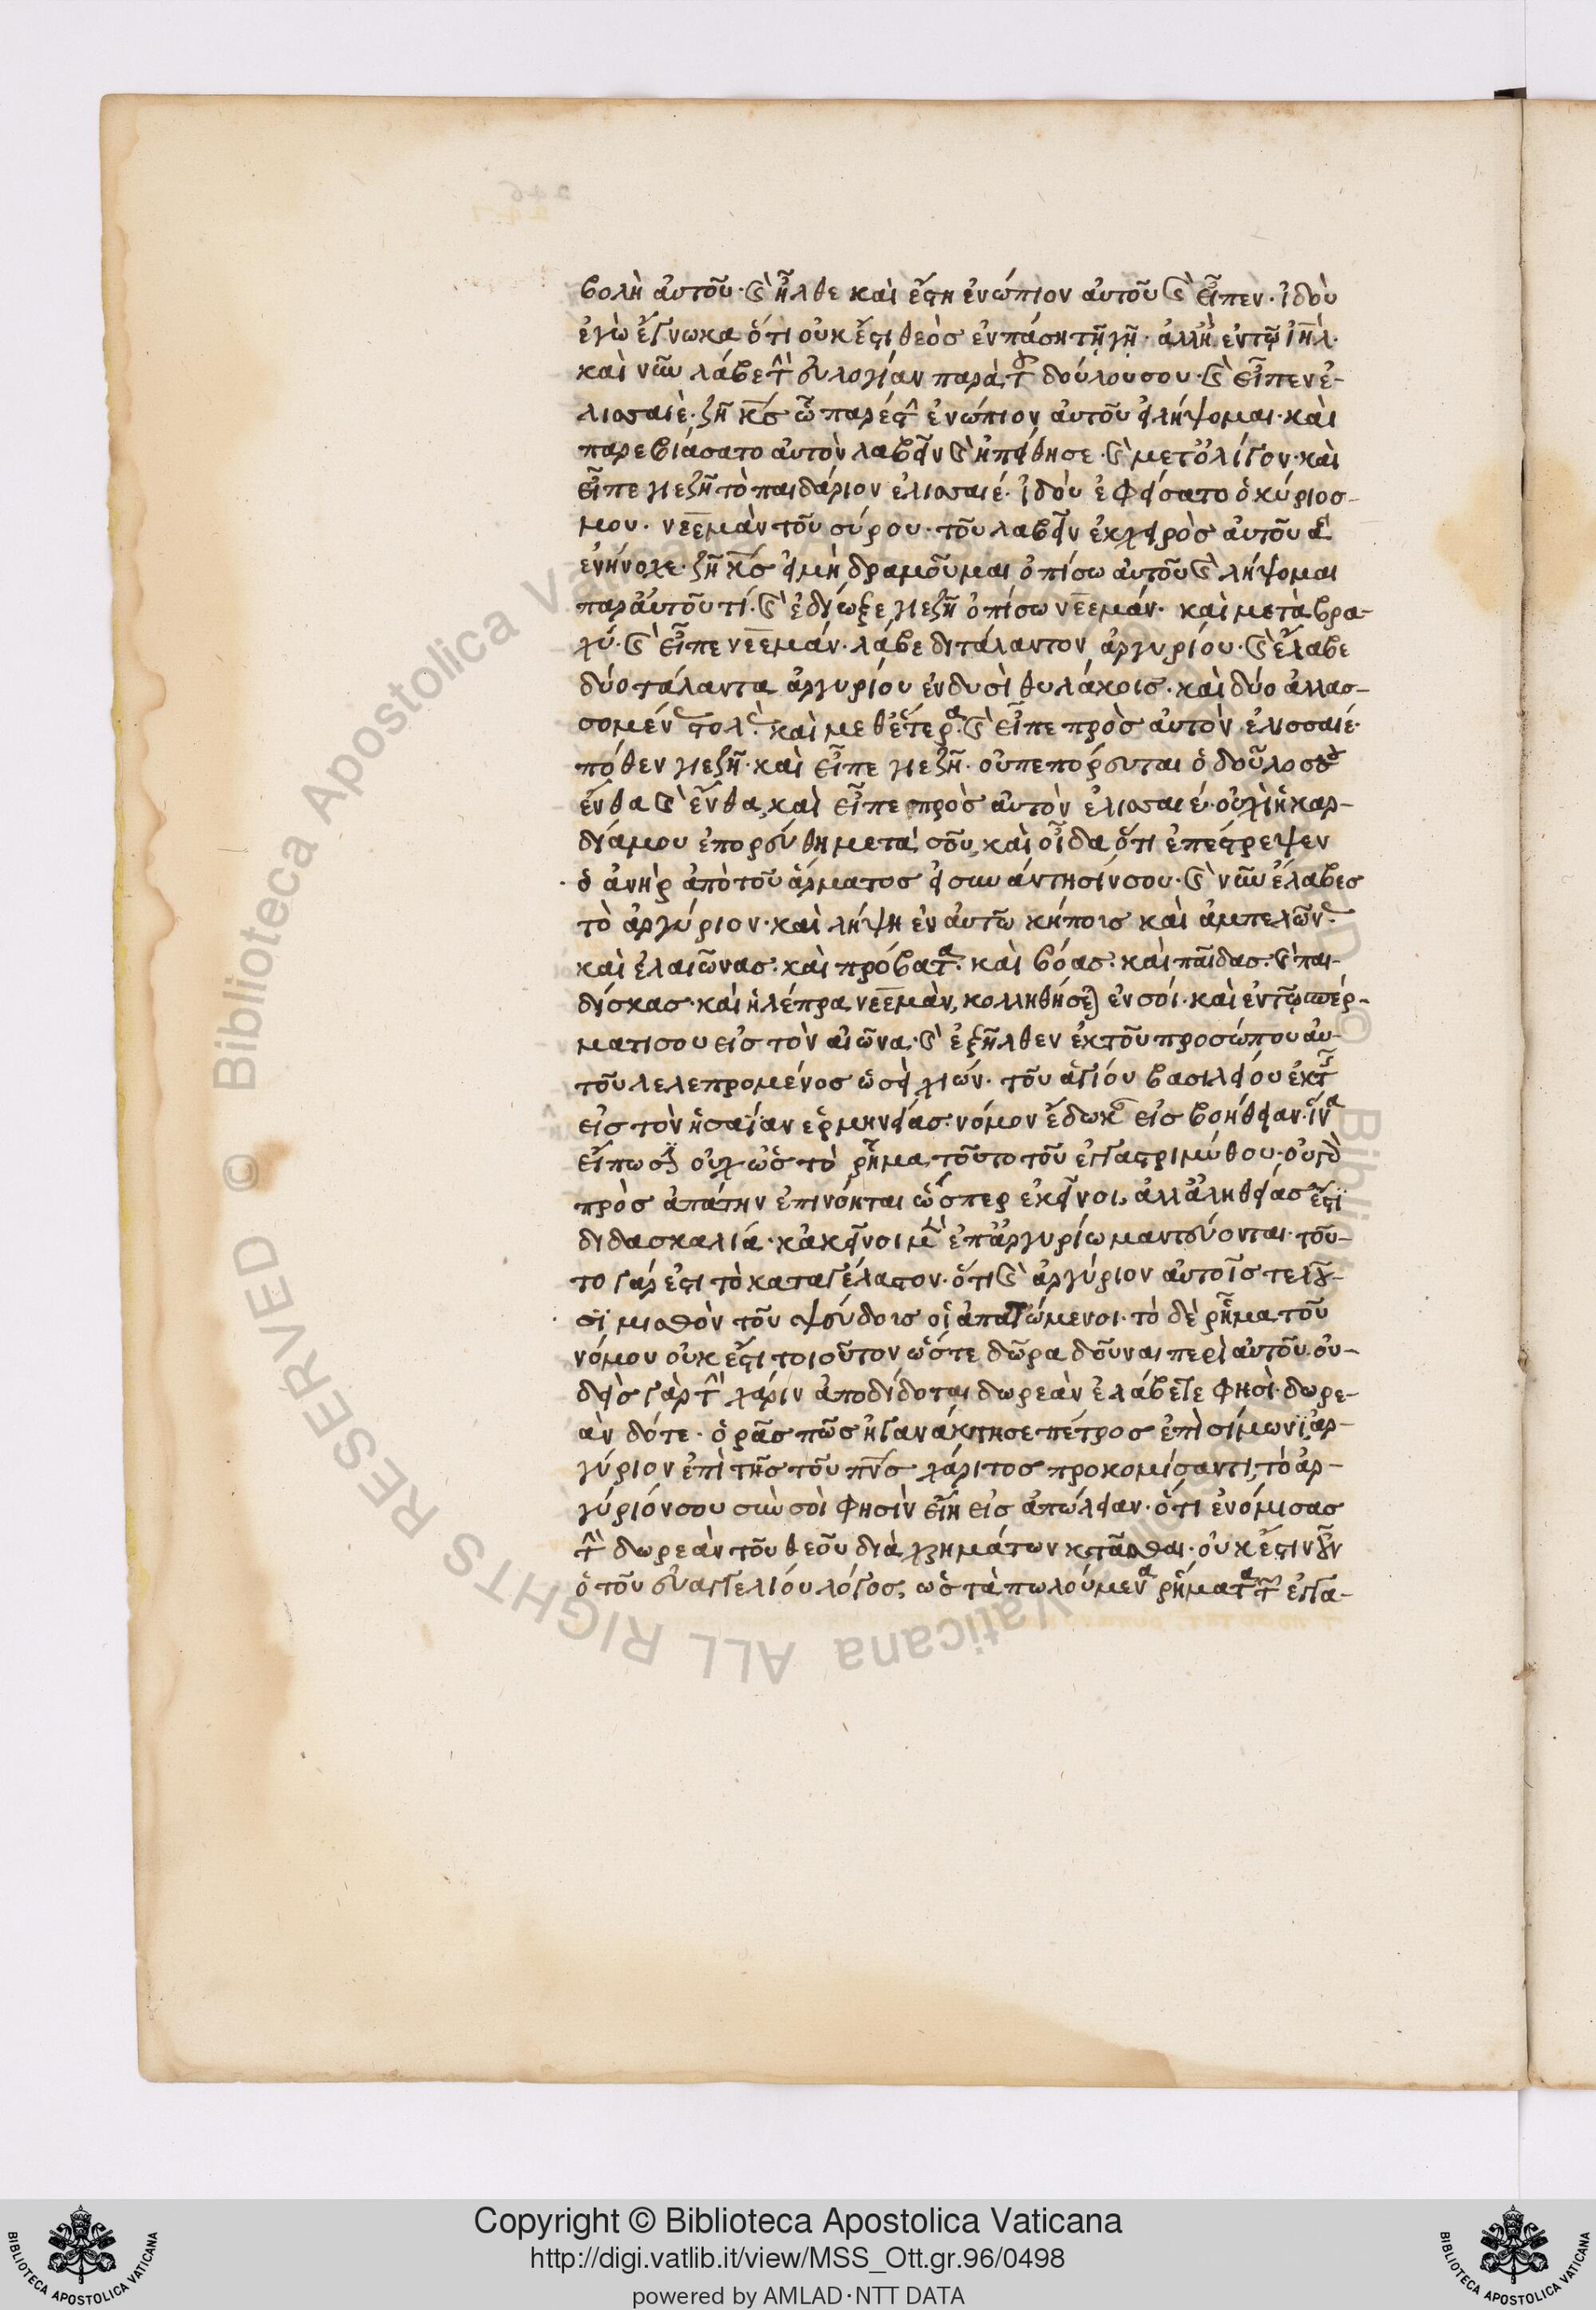 βολὴ αὐτοῦ· καὶ ἦλθε καὶ ἔστη ἐνώπιον αὐτοῦ καὶ εἶπεν· ἰδοὺ
ἐγὼ ἔγνωκα ὅτι οὐκ ἔστι θεὸσ ἐν πάση τῇ γῇ· ἀλλ' ἢ ἐν τῷ ἰηλ·
καὶ νῦν λάβε τὴν εὐλογίαν παρὰ τοῦ δούλου σου· καὶ εἶπεν ἐ-
λισσαιὲ· ζῆ κσ ὧ παρέστην ἐνώπιον αὐτοῦ εἰ λήψομαι· καὶ
παρεβιάσατο αὐτὸν λαβεῖν καὶ ἠπείθησε· καὶ μετ' ὀλίγον· καὶ
εἶπε γιεζῆ τὸ παιδάριον ἐλισσαιέ· ἰδοὺ ἐφείσατο ὁ κύριοσ
μου· νεεμὰν τοῦ σύρου· τοῦ λαβεῖν ἐκ χειρὸσ αὐτοῦ ἃ
ἐνήνοχε· ζῆ κσ εἰ μὴ δραμοῦμαι ὀπίσω αὐτοῦ καὶ λήψομαι
παρ' αὐτοῦ τί· καὶ ἐδίωξε γιεζῆ ὀπίσω νεεμάν· καὶ μετὰ βρα-
χύ· καὶ εἶπε νεεμάν· λάβε διτάλαντον ἀργυρίου· καὶ ἔλαβε
δύο τάλαντα ἀργυρίου ἐν δυσὶ θυλάκοισ· καὶ δύο ἀλλασ-
σομένας στολὰς· καὶ μεθ' ἕτερα· καὶ εἶπε πρὸσ αὐτὸν ἐλισσαιέ·
πόθεν γιεζῆ· καὶ εἶπε γιεζῆ· οὐ πεπόρευται ὁ δοῦλοσ σου
ἔνθα καὶ ἔνθα, καὶ εἶπε πρὸσ αὐτὸν ἐλισσαιέ· οὐχὶ ἡ καρ-
δία μου ἐπορεύθη μετὰ σοῦ, καὶ οἶδα ὅτι ἐπέστρεψεν
ὁ ἀνὴρ ἀπὸ τοῦ ἅρματοσ εἰσ συνάντησίν σου· καὶ νῦν ἔλαβεσ
τὸ ἀργύριον· καὶ λήψη ἐν αὐτῶ κήποισ καὶ ἀμπελῶνας·
καὶ ἐλαιῶνασ· καὶ πρόβατα· καὶ βόασ· καὶ παῖδασ· καὶ παι-
δίσκασ· καὶ ἡ λέπρα νεεμὰν, κολληθήσεται ἐν σοί· καὶ ἐν τῷ σπέρ-
ματι σου εἰσ τὸν αἰῶνα· καὶ ἐξῆλθεν ἐκ τοῦ προσώπου αὐ-
τοῦ λελεπρομένοσ ὡσεὶ χιών· τοῦ ἁγίου βασιλείου ἐκ τῆς
εἰσ τὸν ἡσαΐαν ἑρμηνείασ· νόμον ἔδωκεν εἰσ βοήθειαν· ἵνα
εἴπωσιν οὐχ ὡσ τὸ ῥῆμα τοῦτο τοῦ ἐγγαστριμύθου· οὐ γὰρ
πρὸσ ἀπάτην ἐπινόηται ὥσπερ ἐκεῖνοι, ἀλλ' ἀληθείασ ἐστὶ
διδασκαλία· κἀκεῖνοι μὲν ἐπ' ἀργυρίω μαντεύονται· τοῦ-
το γάρ ἐστι τὸ καταγέλαστον· ὅτι καὶ ἀργύριον αὐτοῖσ τελοῦ-
σι μισθὸν τοῦ ψεύδοισ οἱ ἀπατώμενοι· τὸ δὲ ῥῆμα τοῦ
νόμου οὐκ ἔστι τοιοῦτον ὥστε δῶρα δοῦναι περὶ αὐτοῦ· οὐ-
δεὶσ γὰρ τὴν χάριν ἀποδίδοται δωρεὰν ἐλάβετε φησὶ· δωρε-
ὰν δότε· ὁρᾶσ πῶσ ἠγανάκτησε πέτροσ ἐπὶ σίμωνι, ἀρ-
γύριον ἐπὶ τῆσ τοῦ πνσ χάριτοσ προκομίσαντι, τὸ ἀρ-
γύριόν σου σὺν σοὶ φησὶν εἴη εἰσ ἀπώλειαν· ὅτι ἐνόμισασ
τὴν δωρεὰν τοῦ θεοῦ διὰ χρημάτων κτᾶσθαι· οὐκ ἔστιν οὖν
ὁ τοῦ εὐαγγελίου λόγοσ, ὡσ τὰ πωλούμενα ῥήματα τῶν ἐγγα-
Copyright © Biblioteca Apostolica Vaticana
http://digi.vatlib.it/view/MSS_Ott.gr.96/0498
powered by AMLAD·NTT DATA
BIBLIOTECA APOSTOLICA VATICANA
BIBLIOTECA APOSTOLICA VATICANA
© Biblioteca Apostolica Vaticana ALL RIGHTS RESERVED